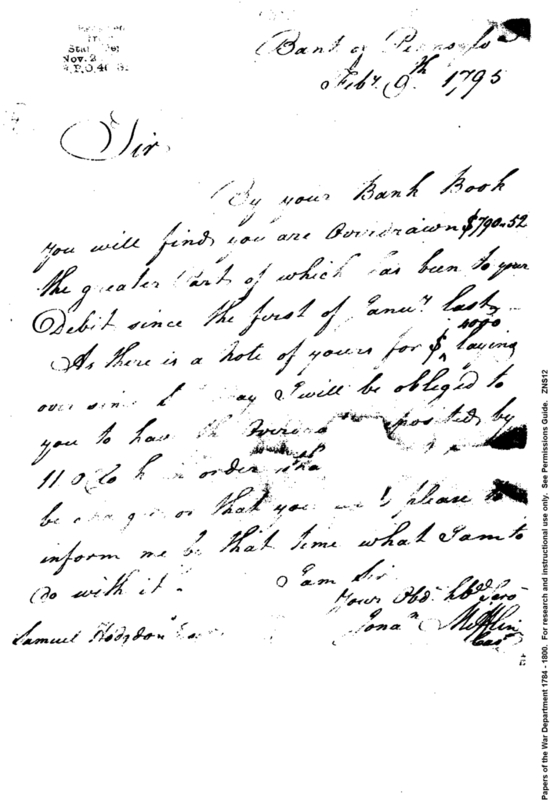 Nov. 2
Bank of Pennsyla
Feby. 9th 1795
Sir
By your Bank Book
you will find you are Overdrawn $790.52
the greater Part of which has been to your
Debit since the first of Januy. last
As there is a Note of yours for $1000 laying
over since I will be obliged to
you to have the deposited by
11 o Clock in order
be or that you will please to
inform me by that time what I am to
do with it.
I am Sir
Your Obd. hbl. Serv
Jonan. Mifflin
Casr
Samuel Hodgdon Esqr
Papers of the War Department 1784 - 1800. For research and instructional use only. See Permissions Guide. ZNS12